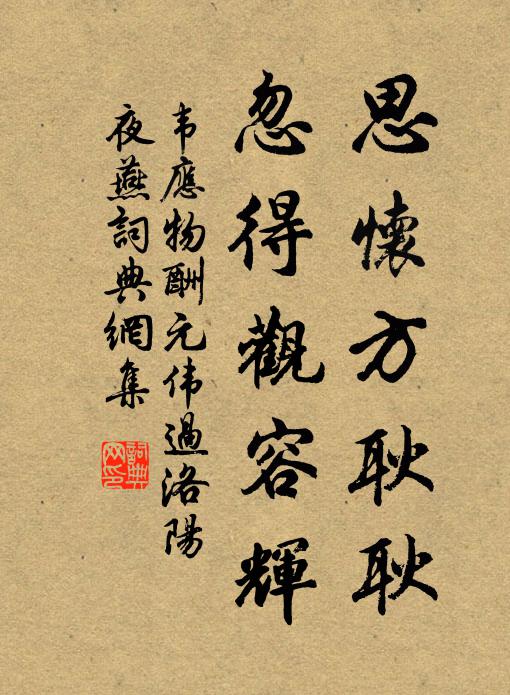 思懷方耿耿
忽得觀容輝
韦應物酬元伟過洛陽
夜燕詞典網集
詞典
网印